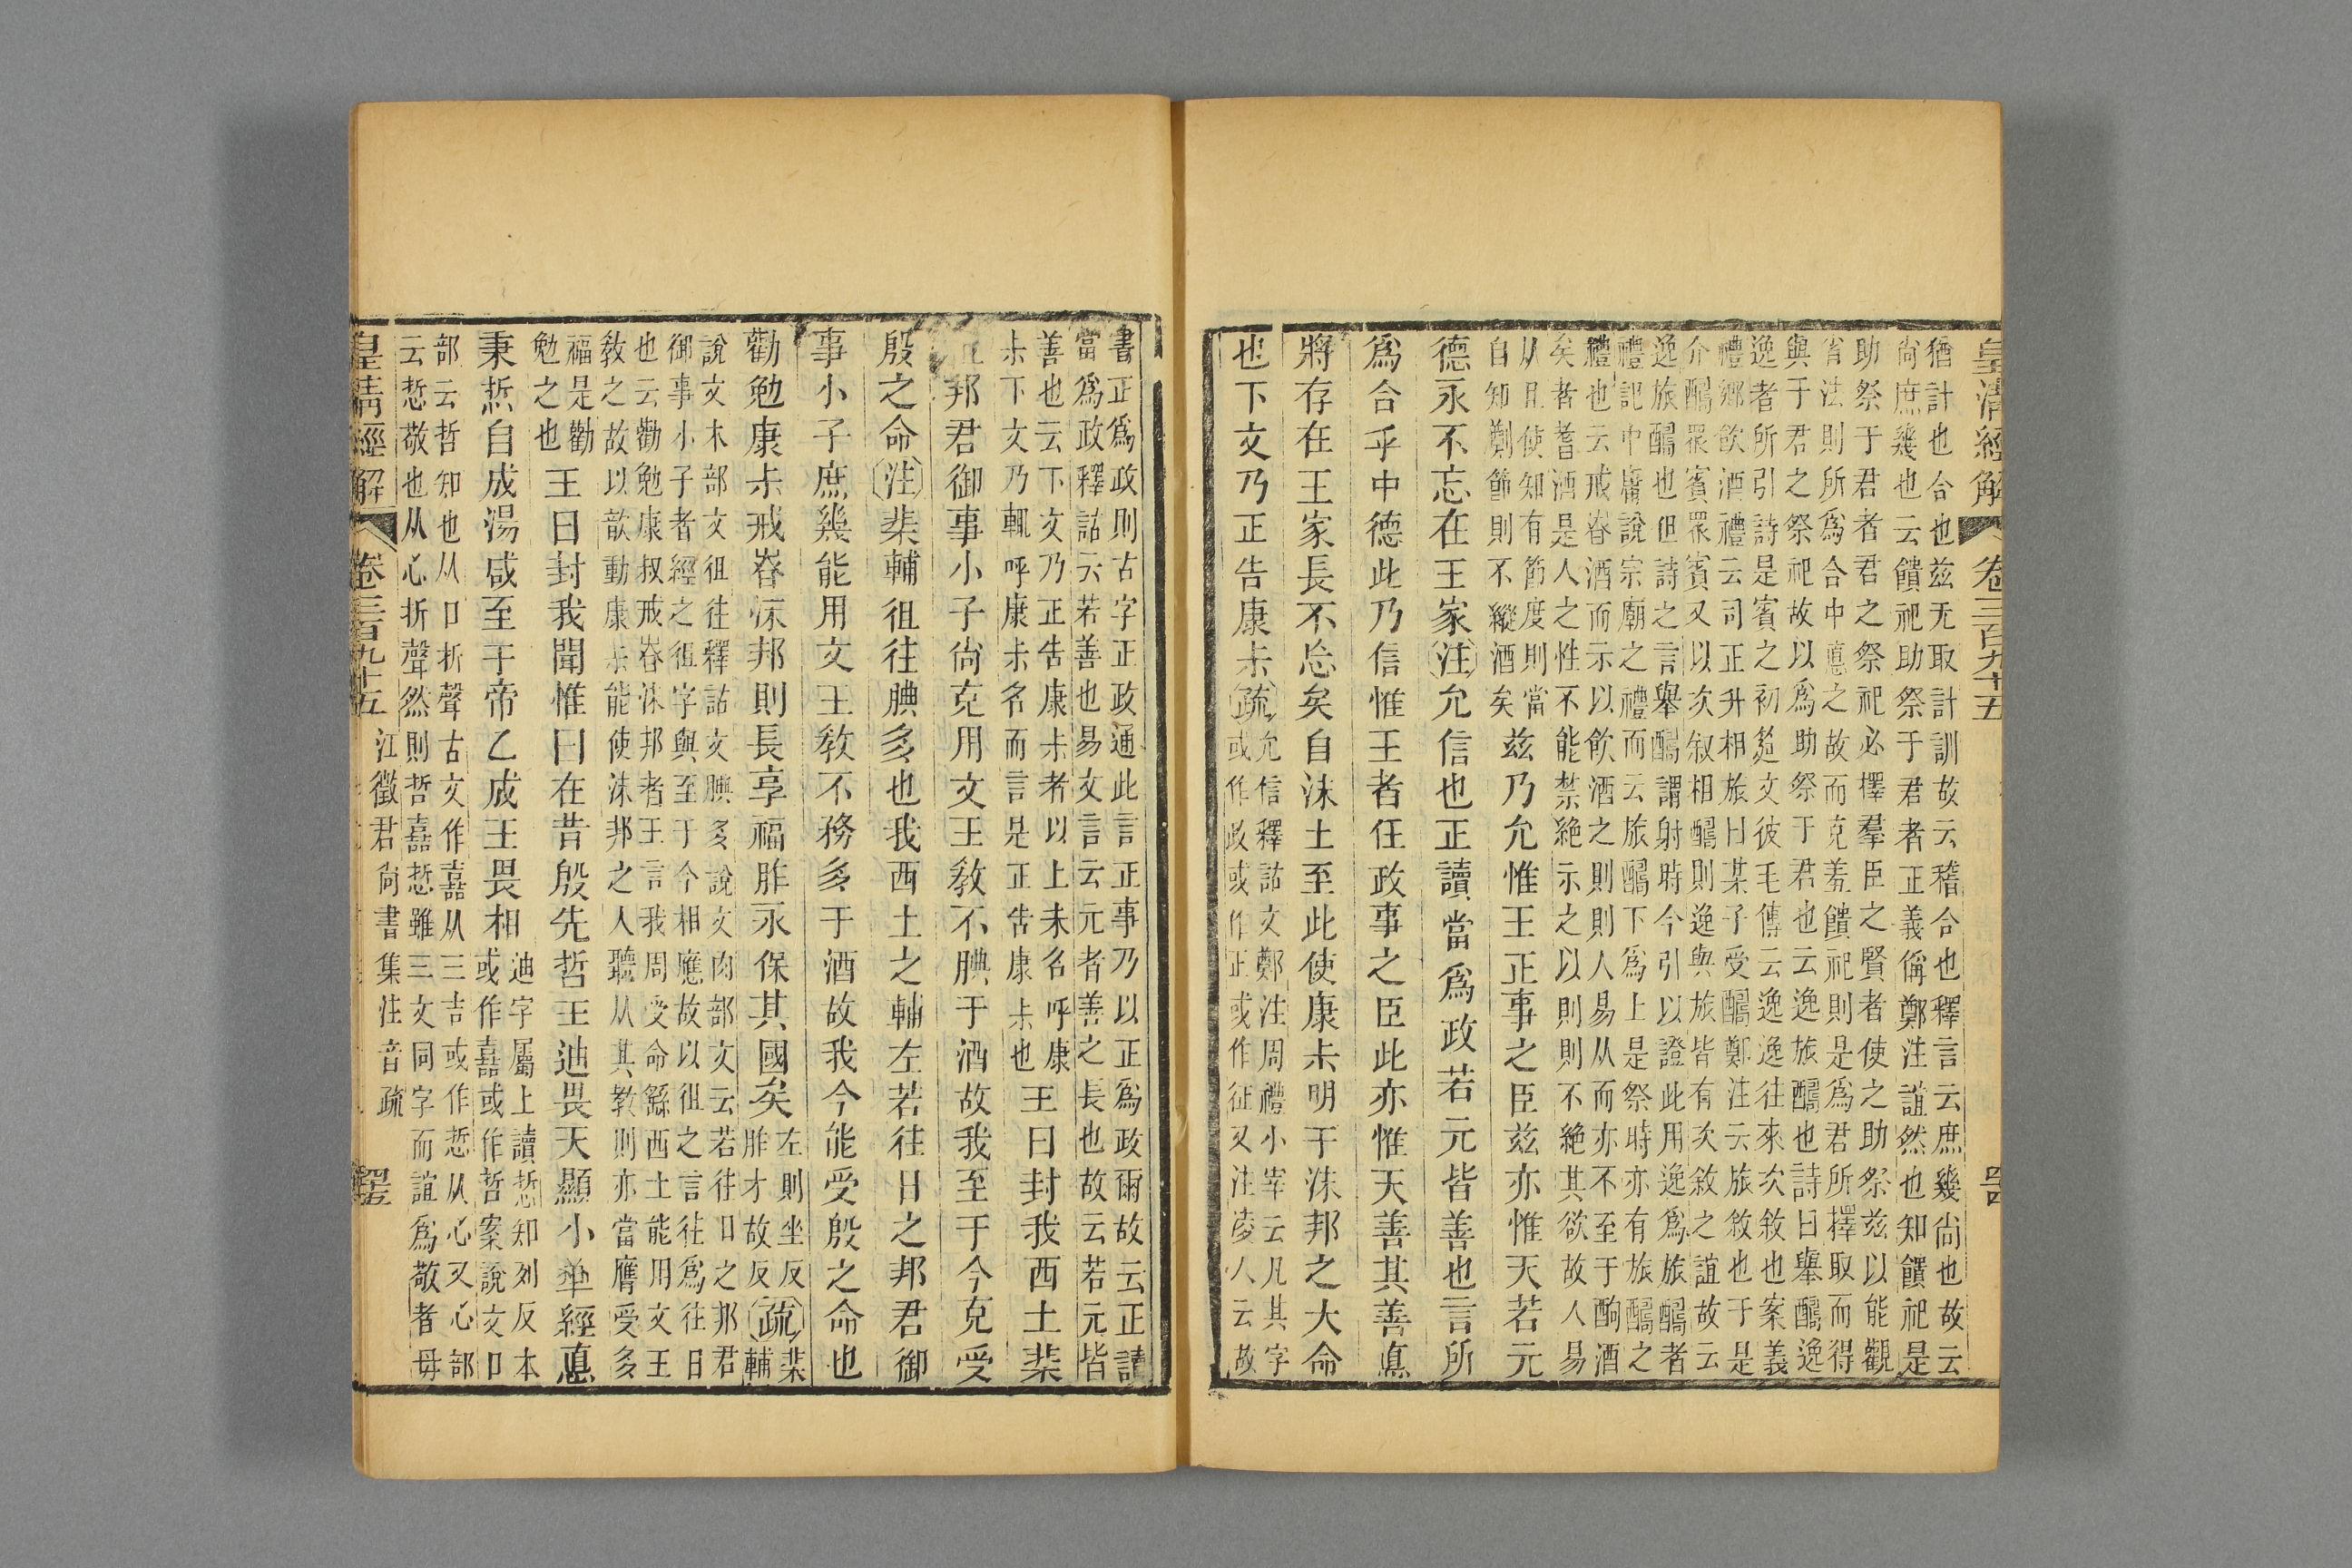 皇清經解 卷三百九十五 四四
猶計也合也兹无取計訓故云稽合也釋言云庶幾尙也故云
尙庶幾也云饋祀助祭于君者正義偁鄭注誼然也知饋祀是
助祭于君者君之祭祀必擇羣臣之賢者使之助祭兹以能觀
省法則所爲合中悳之故而克羞饋祀則是爲君所擇取而得
與于君之祭祀故以爲助祭于君也云逸旅酬也詩曰舉醻逸
逸者所引詩是賓之初筵文彼毛傳云逸逸往來次敘也案義
禮鄉飮酒禮云司正升相旅曰某子受酬鄭注云旅敘也于是
介酬衆賓衆賓又以次敘相酬則逸與旅皆有次敘之誼故云
逸旅酬也但詩之言舉醻謂射時今引以證此用逸爲旅酬者
禮記中庸說宗廟之禮而云旅酬下爲上是祭時亦有旅酬之
禮也云戒春酒而示以飮酒之則則人易从而亦不至于酗酒
矣者耆酒是人之性不能禁絶示之以則則不絶其欲故人易
从且使知有節度則當
自知劑節則不縱酒矣
兹乃允惟王正事之臣兹亦惟天若元
德永不忘在王家
注
允信也正讀當爲政若元皆善也言所
爲合乎中德此乃信惟王者任政事之臣此亦惟天善其善悳
將存在王家長不忘矣自沬土至此使康尗明于沬邦之大命
也下文乃正告康尗
疏
允信釋詁文鄭注周禮小宰云凡其字
或作政或作正或作征又注凌人云故
書正爲政則古字正政通此言正事乃以正爲政爾故云正讀
當爲政釋詁云若善也易文言云元者善之長也故云若元皆
善也云下文乃正告康尗者以上未名呼康
尗下文乃輒呼康尗名而言是正告康尗也
王曰封我西土棐
徂邦君御事小子尙克用文王敎不腆于酒故我至于今克受
殷之命
注
棐輔徂往腆多也我西土之輔左若往日之邦君御
事小子庶幾能用文王敎不務多于酒故我今能受殷之命也
勸勉康尗戒春沬邦則長享福胙永保其國矣
左則坐反
胙才故反
疏
棐
輔
說文木部文徂往釋詁文腆多說文肉部文云若往日之邦君
御事小子者經之徂字與至于今相應故以徂之言往爲往日
也云勸勉康叔戒春沬邦者王言我周受命繇西土能用文王
敎之故以歆動康尗能使沬邦之人聽从其敎則亦當膺受多
福是勸
勉之也
王曰封我聞惟曰在昔殷先哲王迪畏天顯小民經悳
秉悊自成湯咸至于帝乙成王畏相
迪字屬上讀悊知列反本
或作嚞或作哲案說文口
部云哲知也从口折聲古文作嚞从三吉或作悊从心又心部
云悊敬也从心折聲然則哲嚞悊雖三文同字而誼爲敬者毋
皇清經解 卷三百九十五 江徵君尙書集注音疏 四五